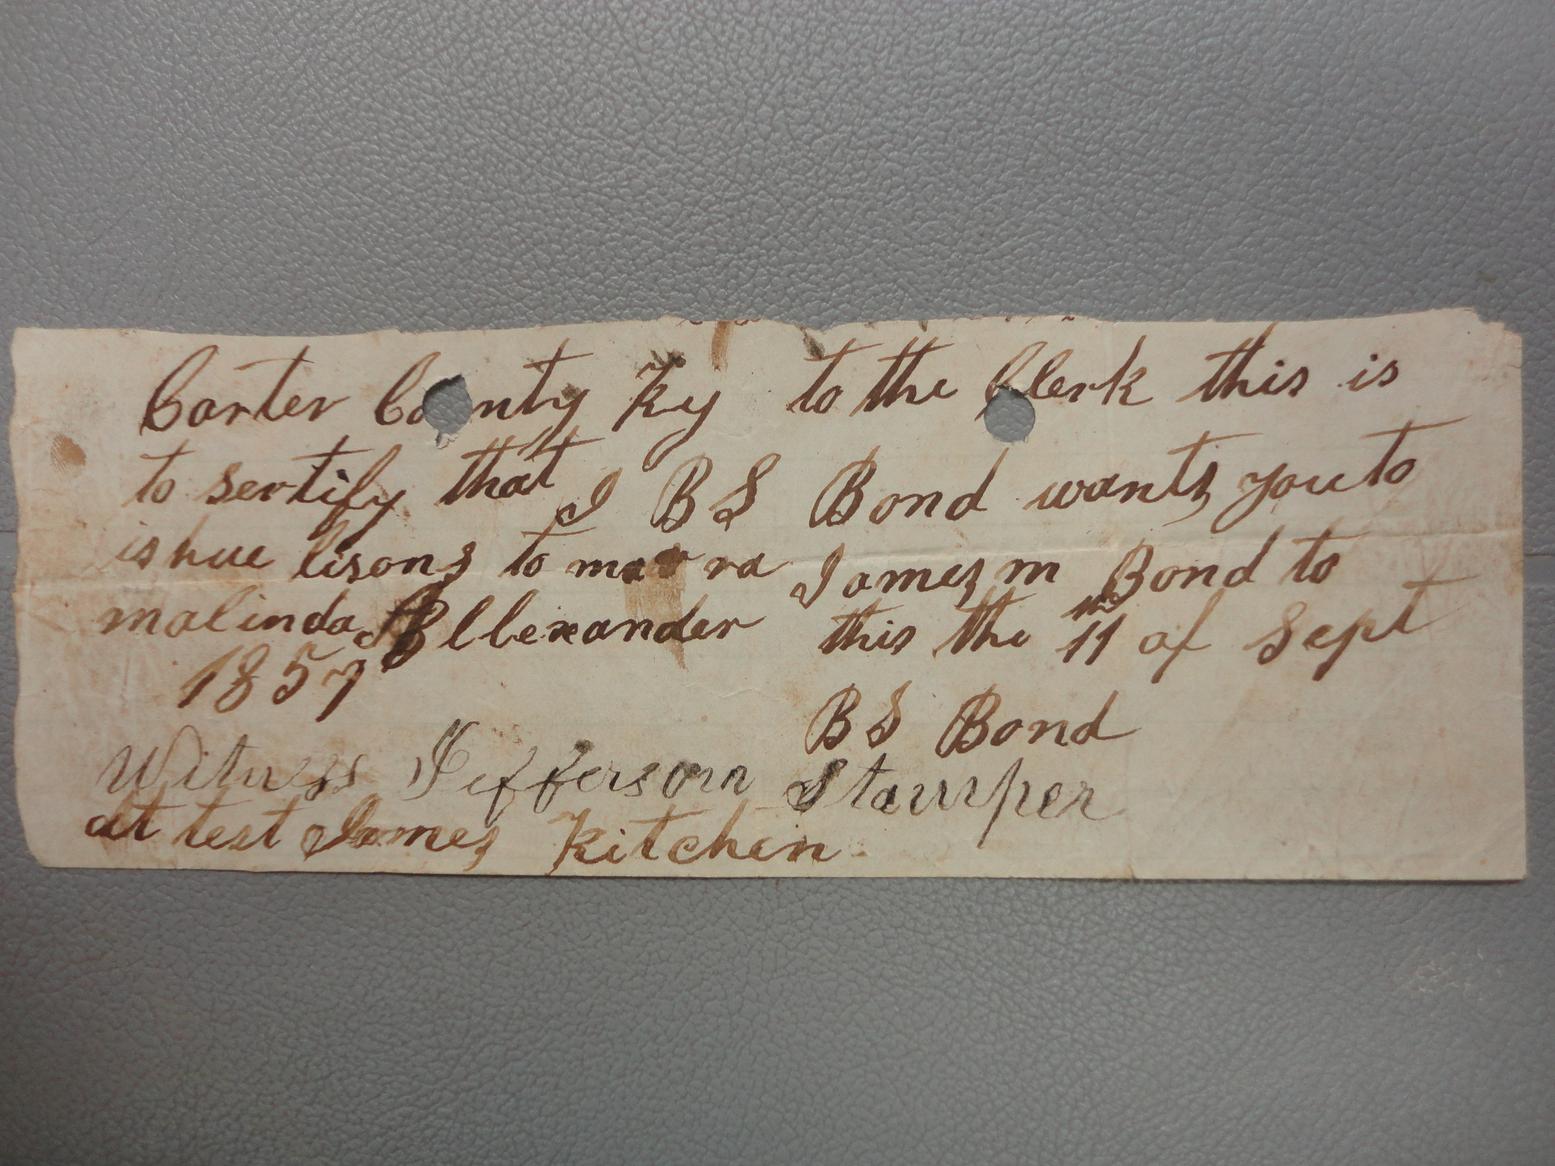 Carter County Ky to the Clerk this is
to sertify that I B S Bond wants you to
ishue lisons to marra James m Bond to
malinda Allexander this the 11 of Sept
1857
B S Bond
Witness Jefferson Stamper
at test James Kitchen